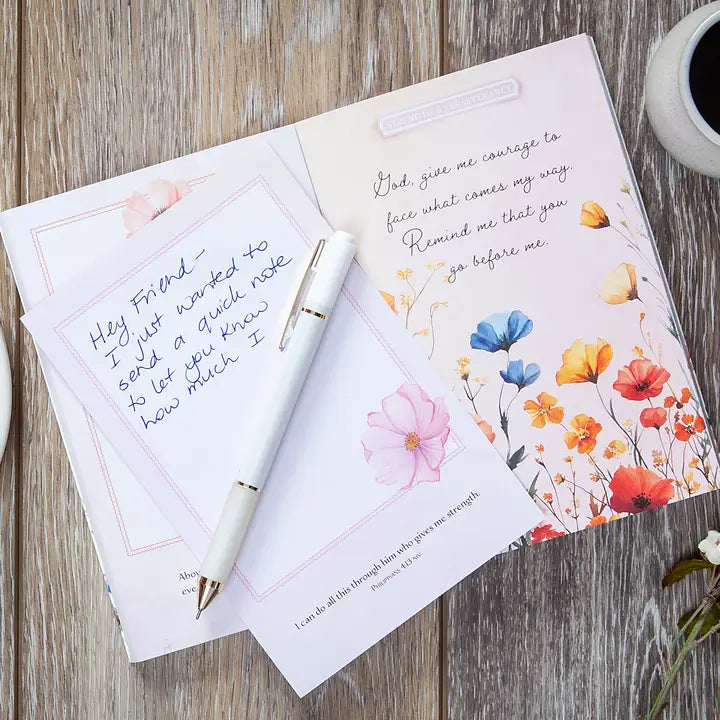 Hey Friend-
I just wanted to
send a quick note
to let you know
how much I
I can do all this through him who gives me strength.
Philippians 4:13 NIV
Abov
eve
STRENGTH & PERSEVERANCE
God, give me courage to
face what comes my way.
Remind me that you
go before me.